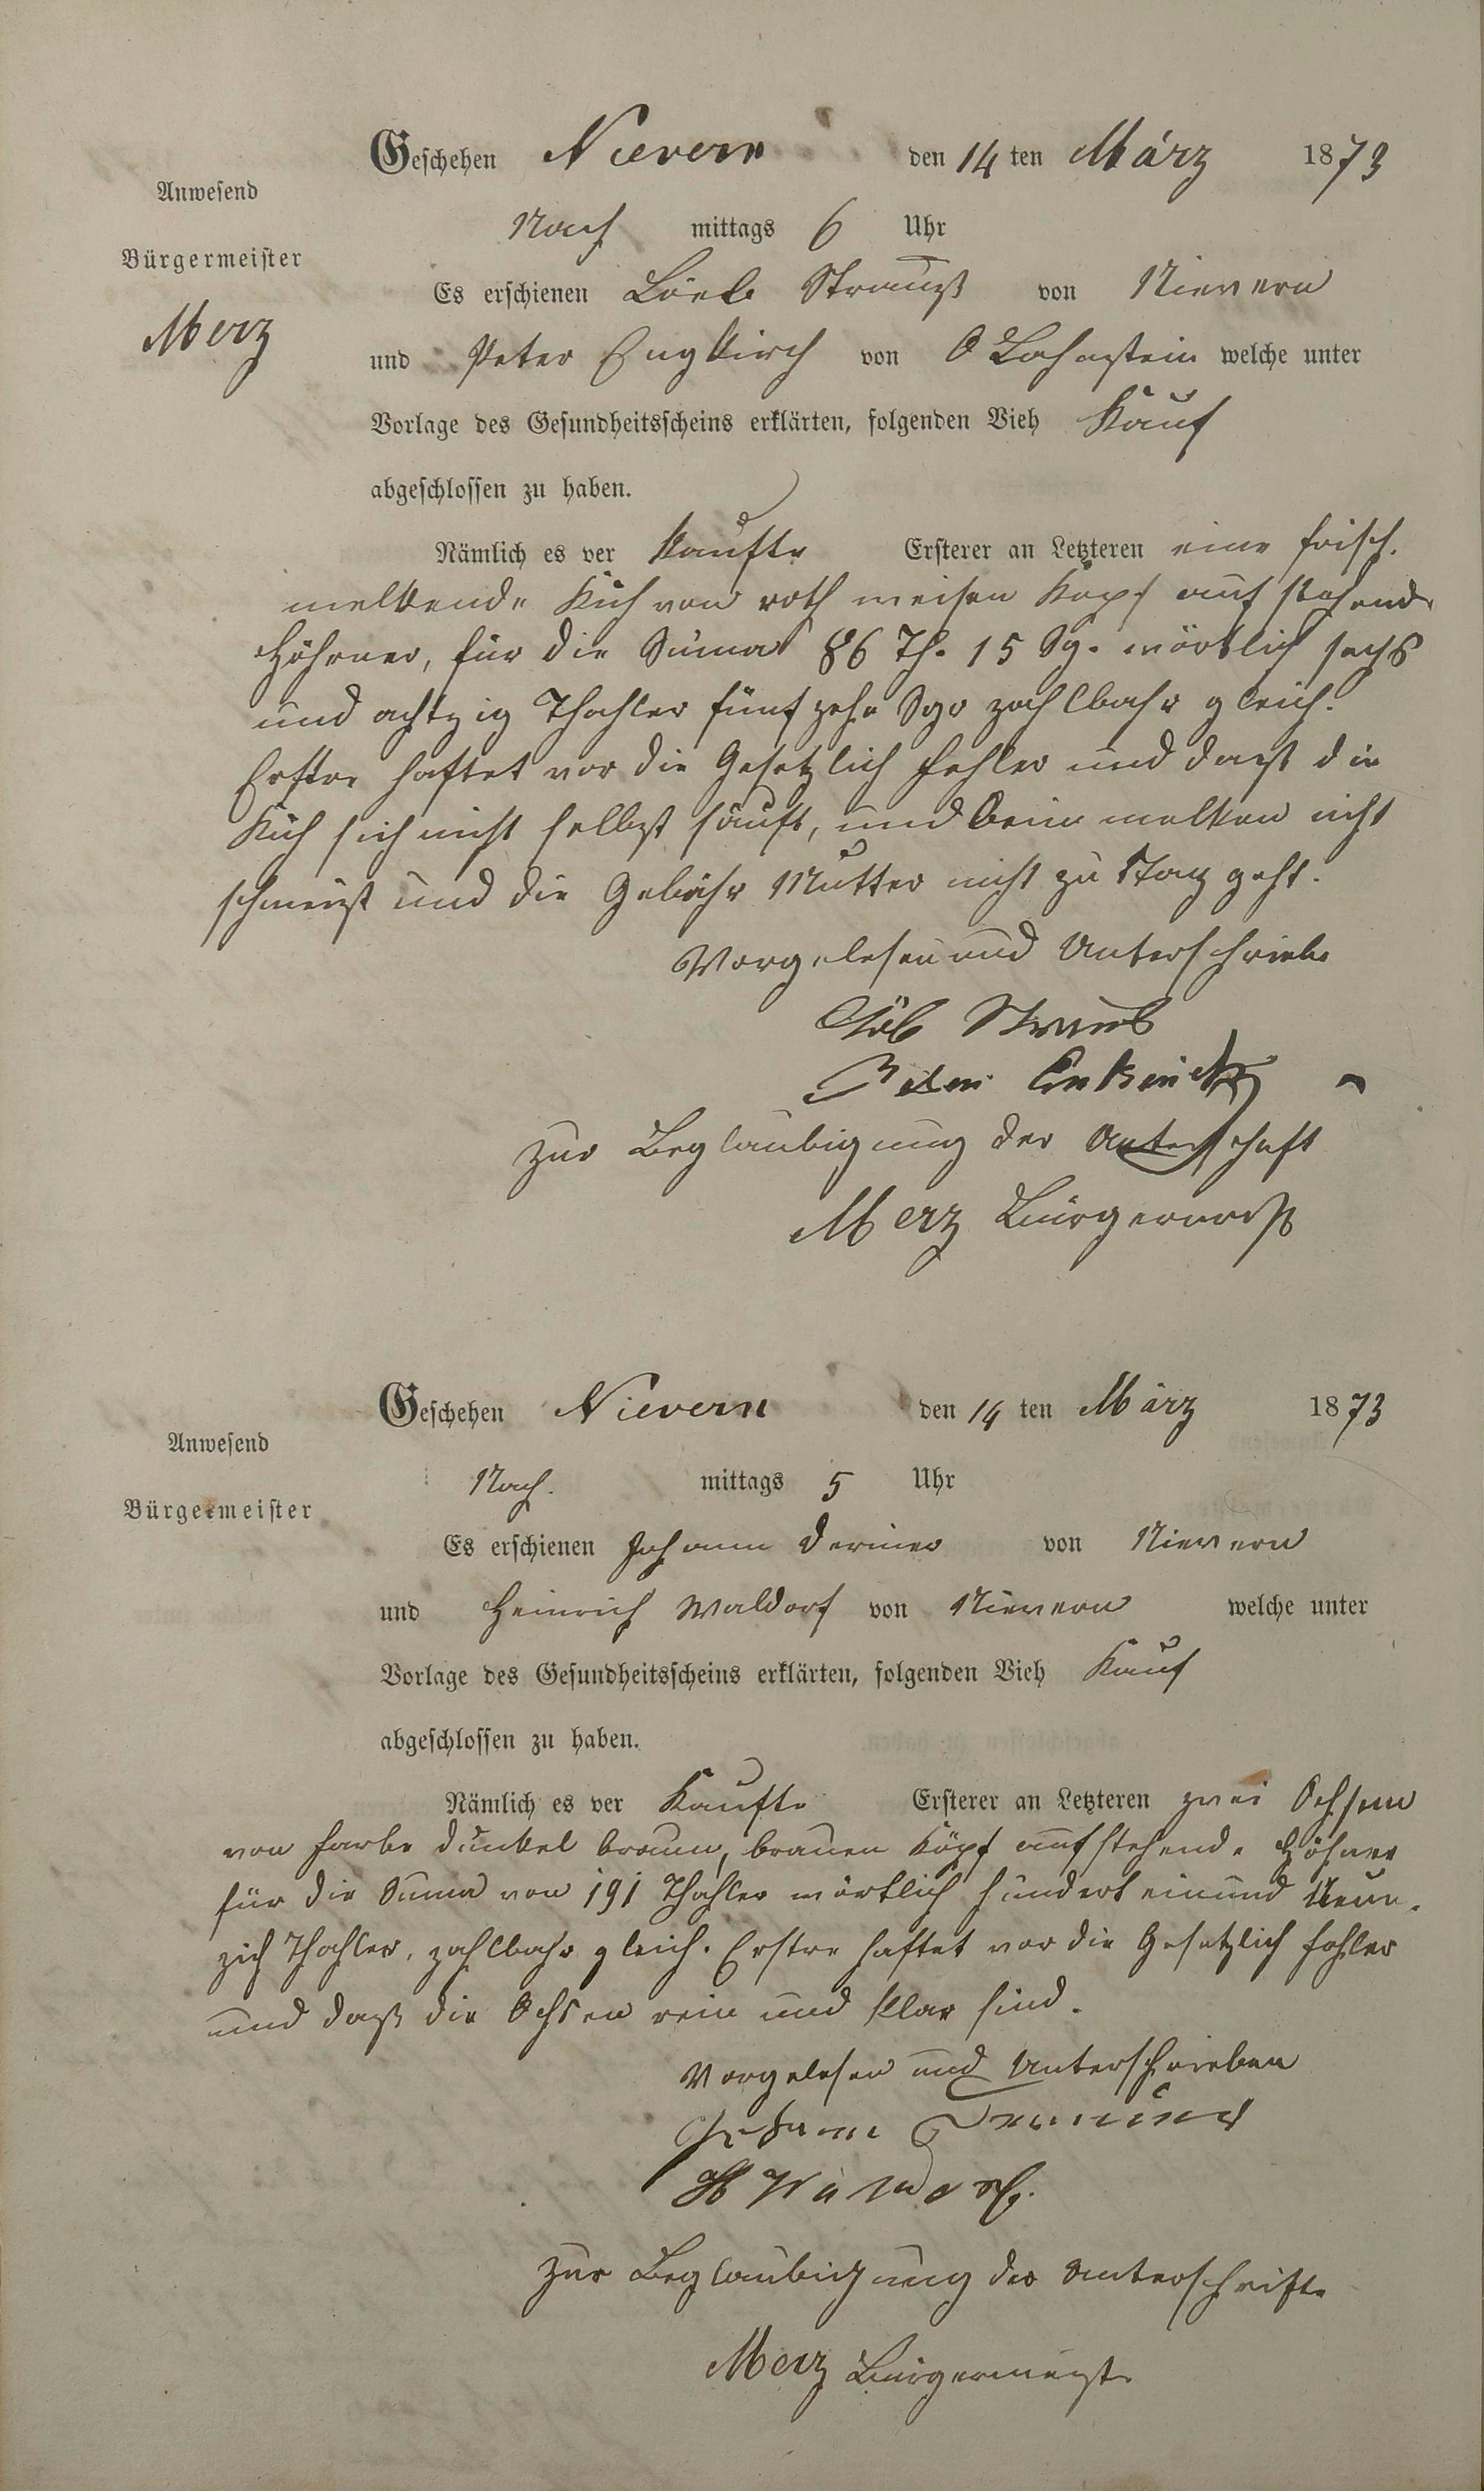 Geschehen Nievern den 14 ten März 1873
Anwesend
Nach mittags 6 Uhr
Bürgermeister
Es erschienen Löeb Strauß von Nievern
Merz
und Peter Engkirch von O Lahnstein welche unter
Vorlage des Gesundheitsscheins erklärten, folgenden Vieh Kauf
abgeschlossen zu haben.
Nämlich es ver kaufte Ersterer an Letzteren eine frisch.
melkende Kuh von roth weisen Kopf auf stehende
Höhrner, für die Suma 86 Th. 15 Sg. wörtlich sechs
und achtzig Thahler fünfzehn Sgr zahlbahr gleich.
Erstre haftet vor die Gesetzlich fehler und daß die
Kuh sich nicht selbst sauft, und beim melken nicht
schmeist und die Gebähr Mutter nicht zu Tag geht.
Vorgelesen und Unterschriebe
Löb Straus
Peter
zur Beglaubigung der Unterschaft
Merz Bürgermeist
Geschehen Nievern den 14 ten März 1873
Anwesend
Nach. mittags 5 Uhr
Bürgermeister
Es erschienen Johann von Nievern
und Heinrich Waldorf von Nievern welche unter
Vorlage des Gesundheitsscheins erklärten, folgenden Vieh Kauf
abgeschlossen zu haben.
Nämlich es ver Kaufte Ersterer an Letzteren zwei Ochsen
von farbe dunkel braun, brauen Köpf aufstehende Höhner
für die Suma von 191 Thahler wörtlich hundert einund Neun.
zich Thahler, zahlbahr gleich. Erstre haftet vor die Gesetzlich fehler
und daß die Ochsen rein und klar sind.
Vorgelesen und Unterschrieben
Johann
H Waldorf.
zur Beglaubigung der Unterschrifte
Merz Bürgermeiste